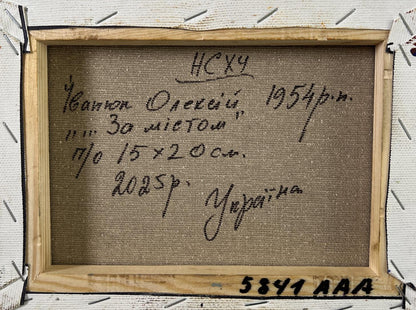 НСХУ
Іванюк Олексій 1954 р.н.
„ „ За містом"
п/о 15×20 см.
2025 р.
Україна
5841 ААА